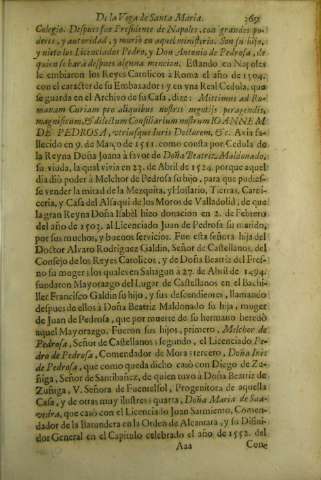 De la Vega de Santa Maria. 365
Colegio. Despues fue Presidente de Napoles, con grandes po-
deres, y autoridad, y murió en aquel ministerio. Son su hijo,
y nieto los Licenciados Pedro, y Don Antonio de Pedrosa, de
quien se hará despues alguna mencion. Estando en Napoles
le embiaron los Reyes Catolicos à Roma el año de 1504.
con el caracter de su Embaxador; y en vna Real Cedula, que
se guarda en el Archivo de su Casa, dize: Mittimus ad Ro-
manam Curiam pro aliquibus nostris negotijs peragendis,
magnificum, & dilectum Consiliarium nostrum IOANNEM
DE PEDROSA, vtriusque Iuris Doctorem, &c. Avia fa-
llecido en 9. de Março de 1511. como consta por Cedula de
la Reyna Doña Joana à favor de Doña Beatriz Maldonado,
su viuda, la qual vivia en 23. de Abril de 1524. porque aquel
dia diò poder à Melchor de Pedrosa su hijo, para que pudies-
se vender la mitad de la Mezquita, y Hosario, Tierras, Carni-
ceria, y Casa del Alfaqui de los Moros de Valladolid, de que
la gran Reyna Doña Isabèl hizo donacion en 2. de Febrero
del año de 1503. al Licenciado Juan de Pedrosa su marido,
por sus muchos, y buenos servicios. Fue esta señora hija del
Doctor Alvaro Rodriguez Galdin, Señor de Castellanos, del
Consejo de los Reyes Catolicos, y de Doña Beatriz del Fres-
no su muger; los quales en Sahagun à 27. de Abril de 1494.
fundaron Mayorazgo del Lugar de Castellanos en el Bachi-
ller Francisco Galdin su hijo, y sus descendientes, llamando
despues de ellos à Doña Beatriz Maldonado su hija, muger
de Juan de Pedrosa, que por muerte de su hermano heredò
aquel Mayorazgo. Fueron sus hijos, primero, Melchor de
Pedrosa, Señor de Castellanos; segundo, el Licenciado Pe-
dro de Pedrosa, Comendador de Mora; tercero, Doña Inès
de Pedrosa, que como queda dicho casò con Diego de Zu-
ñiga, Señor de Santibañez, de quien tuvo à Doña Beatriz de
Zuñiga, V. Señora de Fuentelsol, Progenitora de aquella
Casa, y de otras muy ilustres; quarta, Doña Maria de Saa-
vedra, que casò con el Licenciado Juan Sarmiento, Comen-
dador de la Batundera en la Orden de Alcantara, y su Difini-
dor General en el Capitulo celebrado el año de 1552. del
Aaa Conse